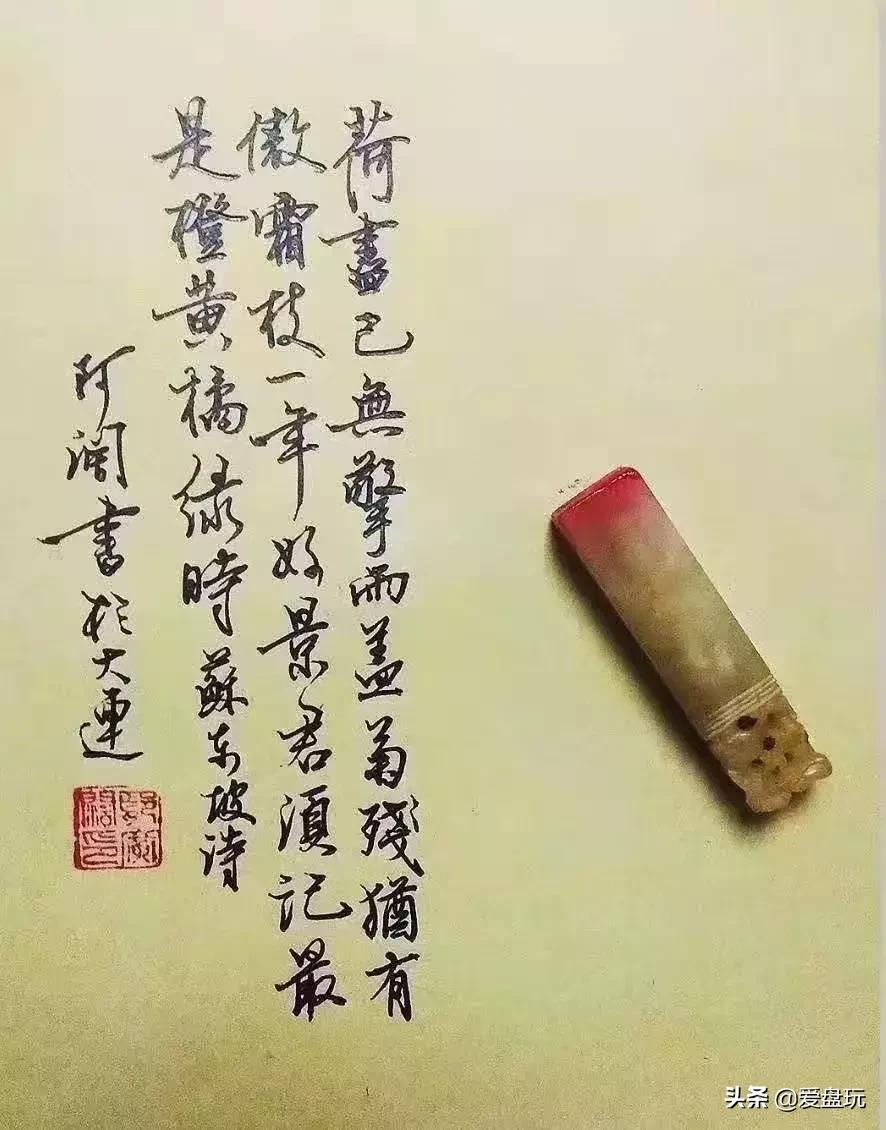 荷盡已無擎雨蓋菊殘猶有
傲霜枝一年好景君須記最
是橙黃橘绿時蘇东坡诗
阿澗書於大連
头条 @爱盘玩